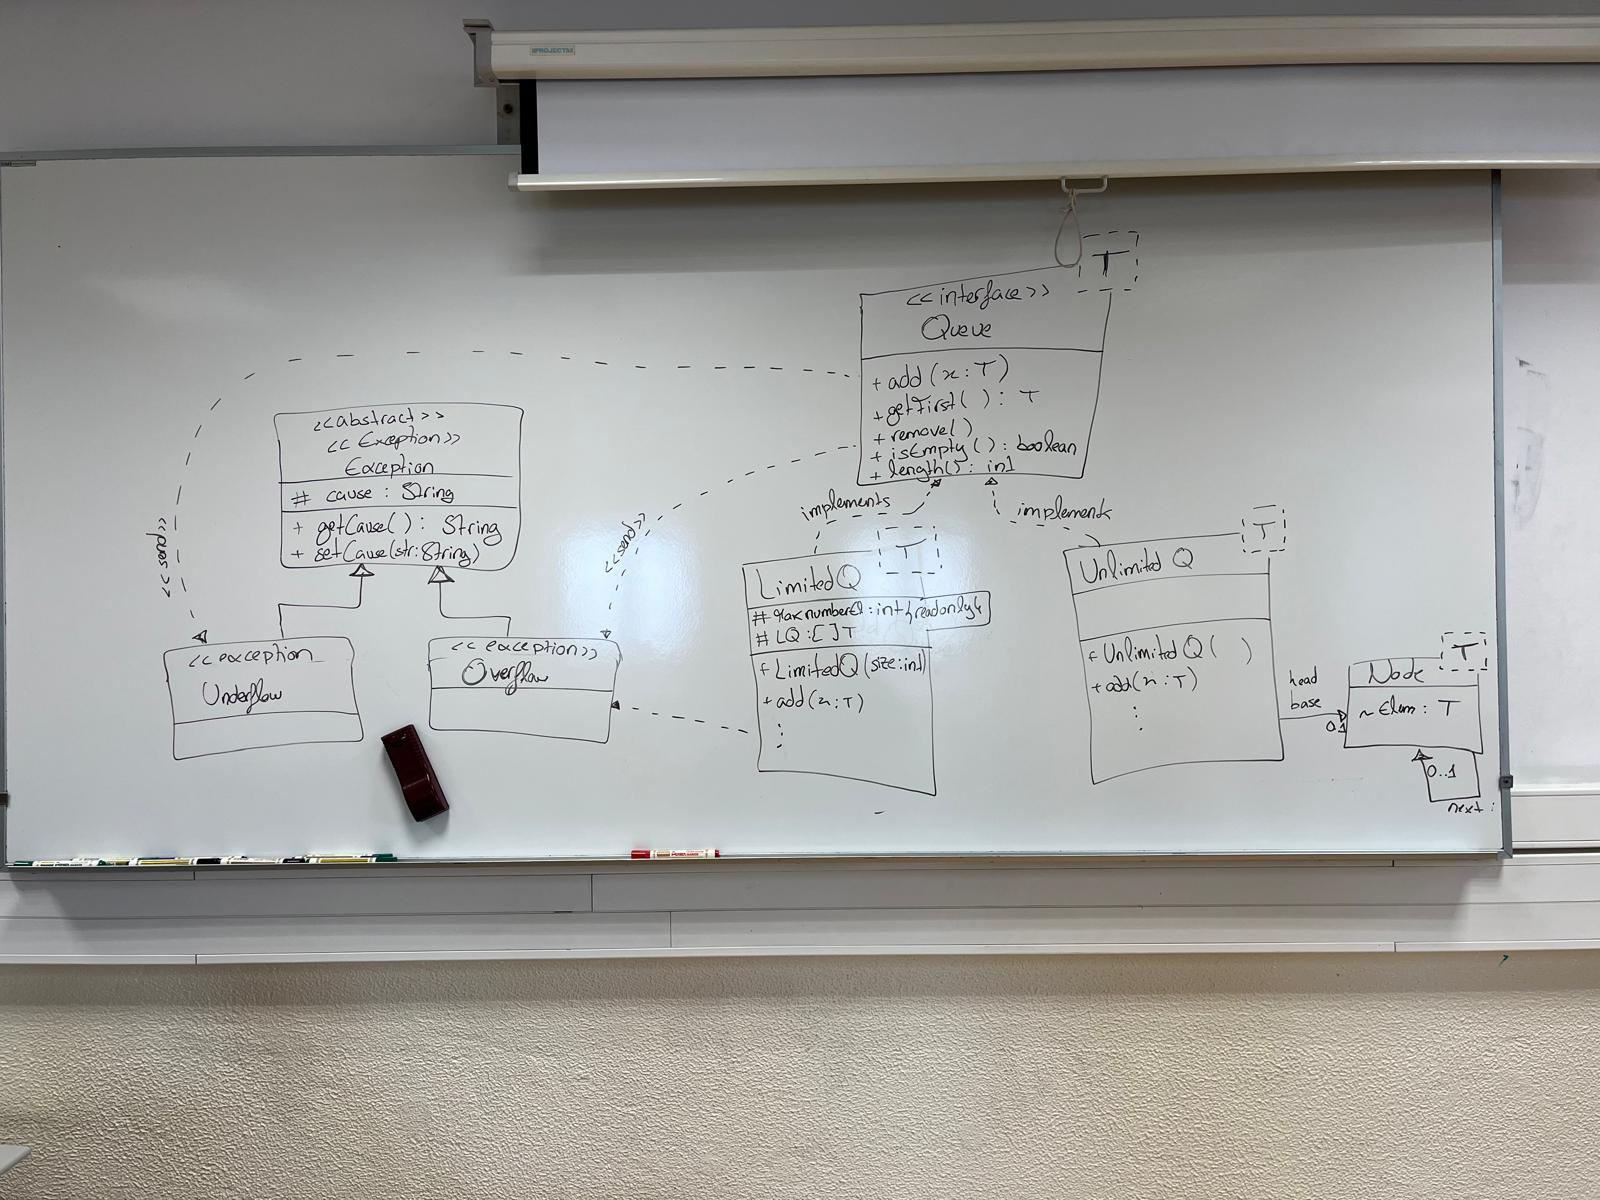 PROJECTA
T
<<interface>>
Queue
+ add (x : T)
+ getFirst( ) : T
+ remove( )
+ isEmpty ( ) : boolean
+ length() : int
<<send>>
<<abstract>>
<<Exception>>
Exception
# cause : String
+ getCause( ) : String
+ setCause(str:String)
<<send>>
<<exception
Underflow
<<exception>>
Overflow
implements
implements
T
LimitedQ
: int {readonly}
# LQ : [ ] T
+ LimitedQ (size:int)
+ add (x : T)
T
Unlimited Q
+ Unlimited Q ( )
+ add(x : T)
head
base
0.1
T
Node
~ Elem : T
0..1
next :